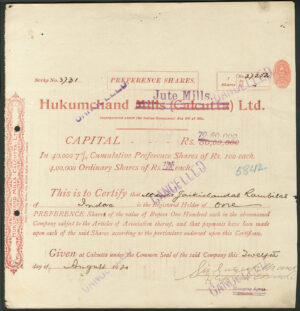 Scrip No. 3731 PREFERENCE SHARES.
CANCELLED
Jute Mills
Hukumchand Mills (Calcutta) Ltd.
Incorporated under the Indian Companies Act
CAPITAL Rs. 80,00,000
70,00,000
In 40,000 7% Cumulative Preference Shares of Rs. 100 each
4,00,000 Ordinary Shares of Rs. each.
5842
CANCELLED
This is to Certify that
of Indore is the Registered Holder of One
PREFERENCE Shares of the value of Rupees One Hundred each in the abovenamed
Company subject to the Articles of Association thereof, and that payments have been made
upon each of the said Shares according to the particulars endorsed upon this Certificate.
Given at Calcutta under the Common Seal of the said Company this Twelfth
day of August 1920
CANCELLED
Managing Agents